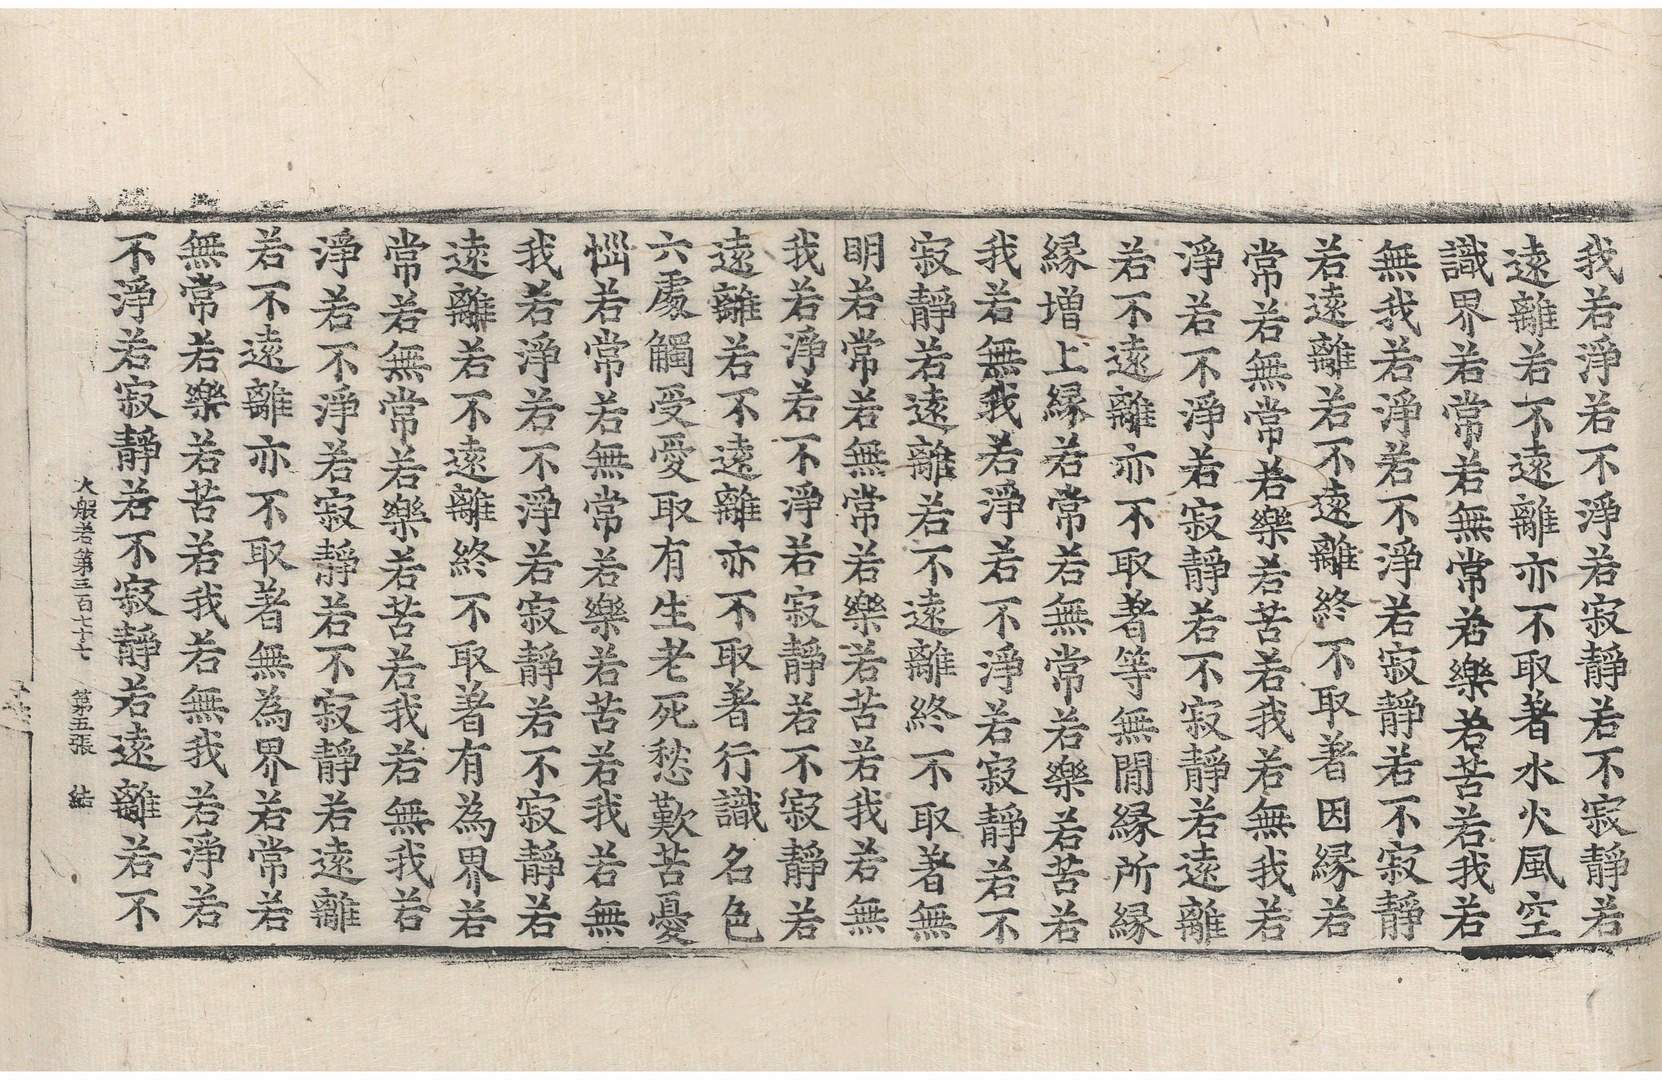 我若淨若不淨若寂靜若不寂靜若
遠離若不遠離亦不取著水火風空
識界若常若無常若樂若苦若我若
無我若淨若不淨若寂靜若不寂靜
若遠離若不遠離終不取著因縁若
常若無常若樂若苦若我若無我若
淨若不淨若寂靜若不寂靜若遠離
若不遠離亦不取著等無閒縁所縁
縁增上縁若常若無常若樂若苦若
我若無我若淨若不淨若寂靜若不
寂靜若遠離若不遠離終不取著無
明若常若無常若樂若苦若我若無
我若淨若不淨若寂靜若不寂靜若
遠離若不遠離亦不取著行識名色
六處觸受愛取有生老死愁歎苦憂
惱若常若無常若樂若苦若我若無
我若淨若不淨若寂靜若不寂靜若
遠離若不遠離終不取著有為界若
常若無常若樂若苦若我若無我若
淨若不淨若寂靜若不寂靜若遠離
若不遠離亦不取著無為界若常若
無常若樂若苦若我若無我若淨若
不淨若寂靜若不寂靜若遠離若不
大般若第三百七十七 第五張 結